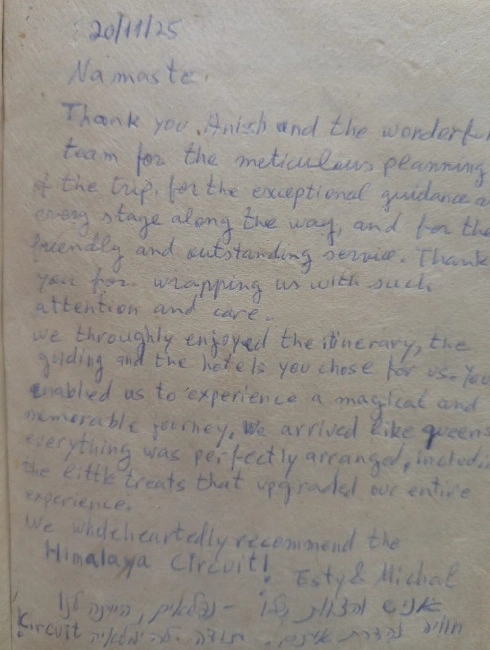 20/11/25
Namaste.
Thank you, Anish and the wonderful
team for the meticulous planning
of the trip, for the exceptional guidance a
every stage along the way, and for the
friendly and outstanding service. Thank
you for wrapping us with such
attention and care.
we throughly enjoyed the itinerary, the
guiding and the hotels you chose for us. You
enabled us to experience a magical and
memorable journey. We arrived like queens
everything was perfectly arranged, includi
the little treats that upgraded our entire
experience.
We wholeheartedly recommend the
Himalaya Circuit!
Esty & Michal
אניש והצוות שלו - נפלאים, הייתה לנו
חוויה נהדרת איתם. תודה
Circuit